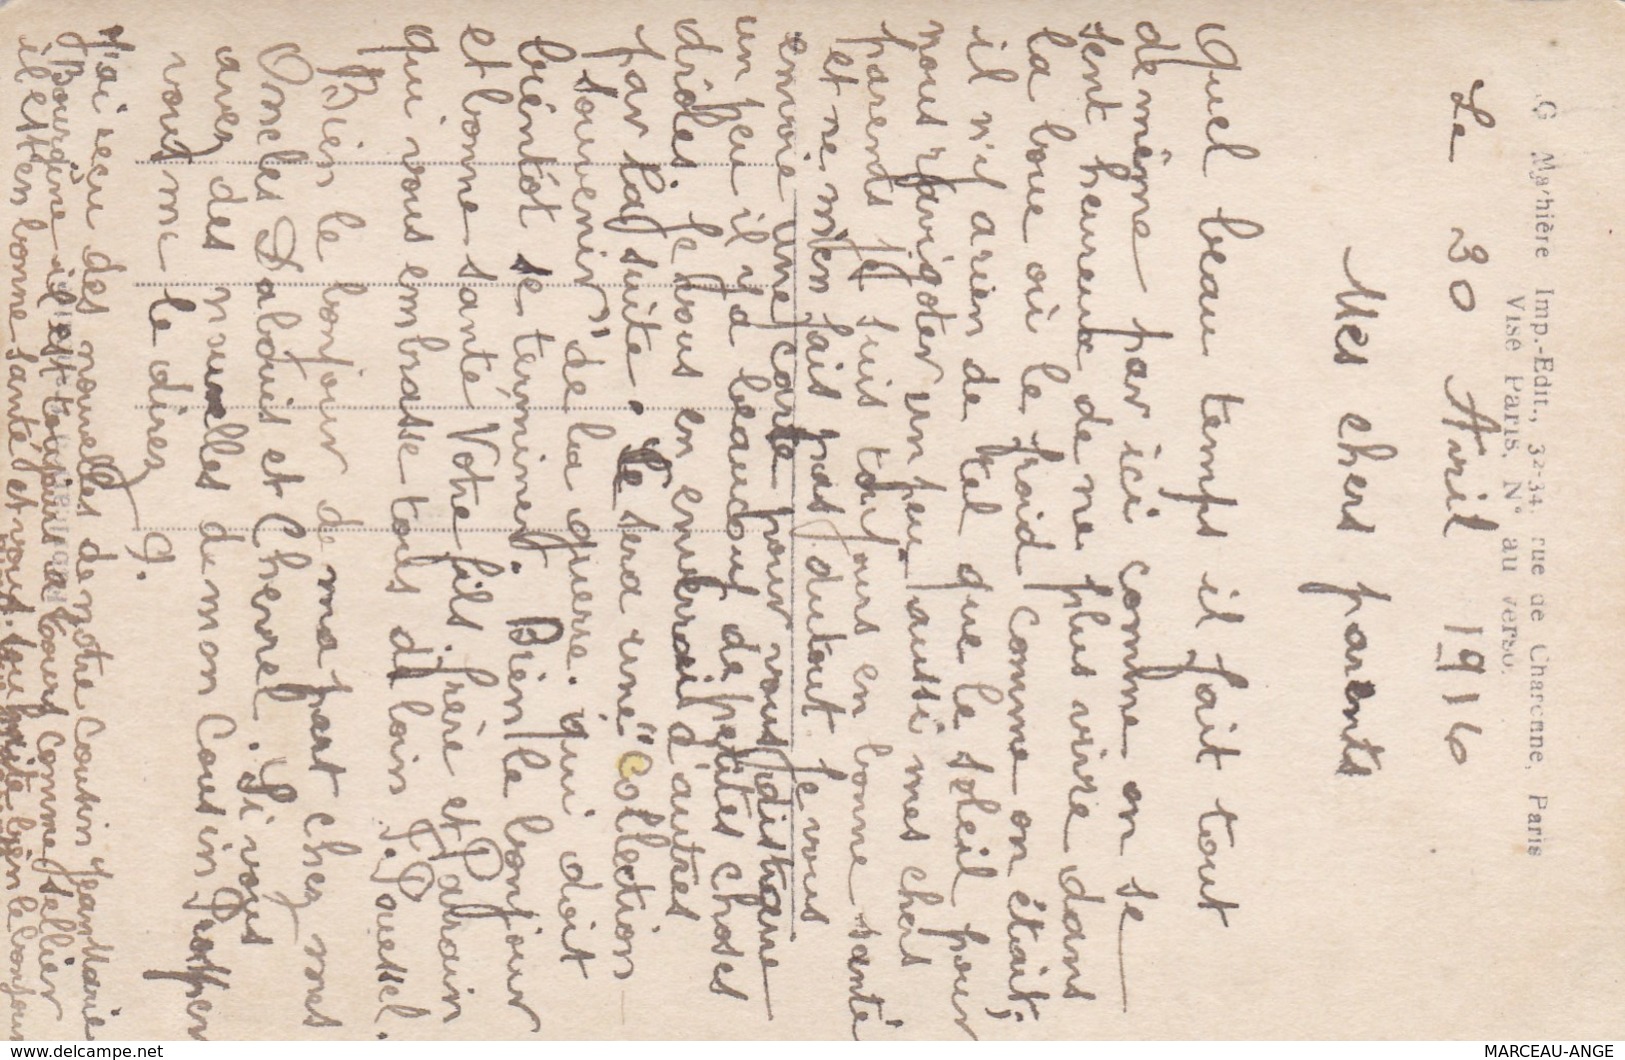 G Mathière Imp.-Edit., 32-34, rue de Charonne, Paris
VISÉ PARIS, N° au verso.
Le 30 Avril 1916
Mes chers parents
Quel beau temps il fait tout
de même par ici comme on se
sent heureux de ne plus vivre dans
la boue où le froid comme on était;
il n'y a rien de tel que le soleil pour
nous ravigoter un peu aussi mes chers
parents je suis toujours en bonne santé
et ne m'en fais pas dutout. Je vous
envoie une carte pour vous distraire
un peu il y a beaucoup de petites choses
drôles je vous en enverrai d'autres
par la suite. Ce sera une "Collection
souvenir" de la guerre. qui doit
bientôt se terminer. Bien le bonjour
et bonne santé Votre fils, frère et Parrain
qui vous embrasse tous de loin J. Pouessel.
Bien le bonjour de ma part chez mes
Oncles Dabouis et Chevrel. Si vous
avez des nouvelles de mon Cousin Prosper
vous me le direz J.
J'ai reçu des nouvelles de notre Cousin Jean Marie
Bourgine il est toujours à Tours comme sellier
il est en bonne santé et vous souhaite bien le bonjour
delcampe.net
MARCEAU-ANGE